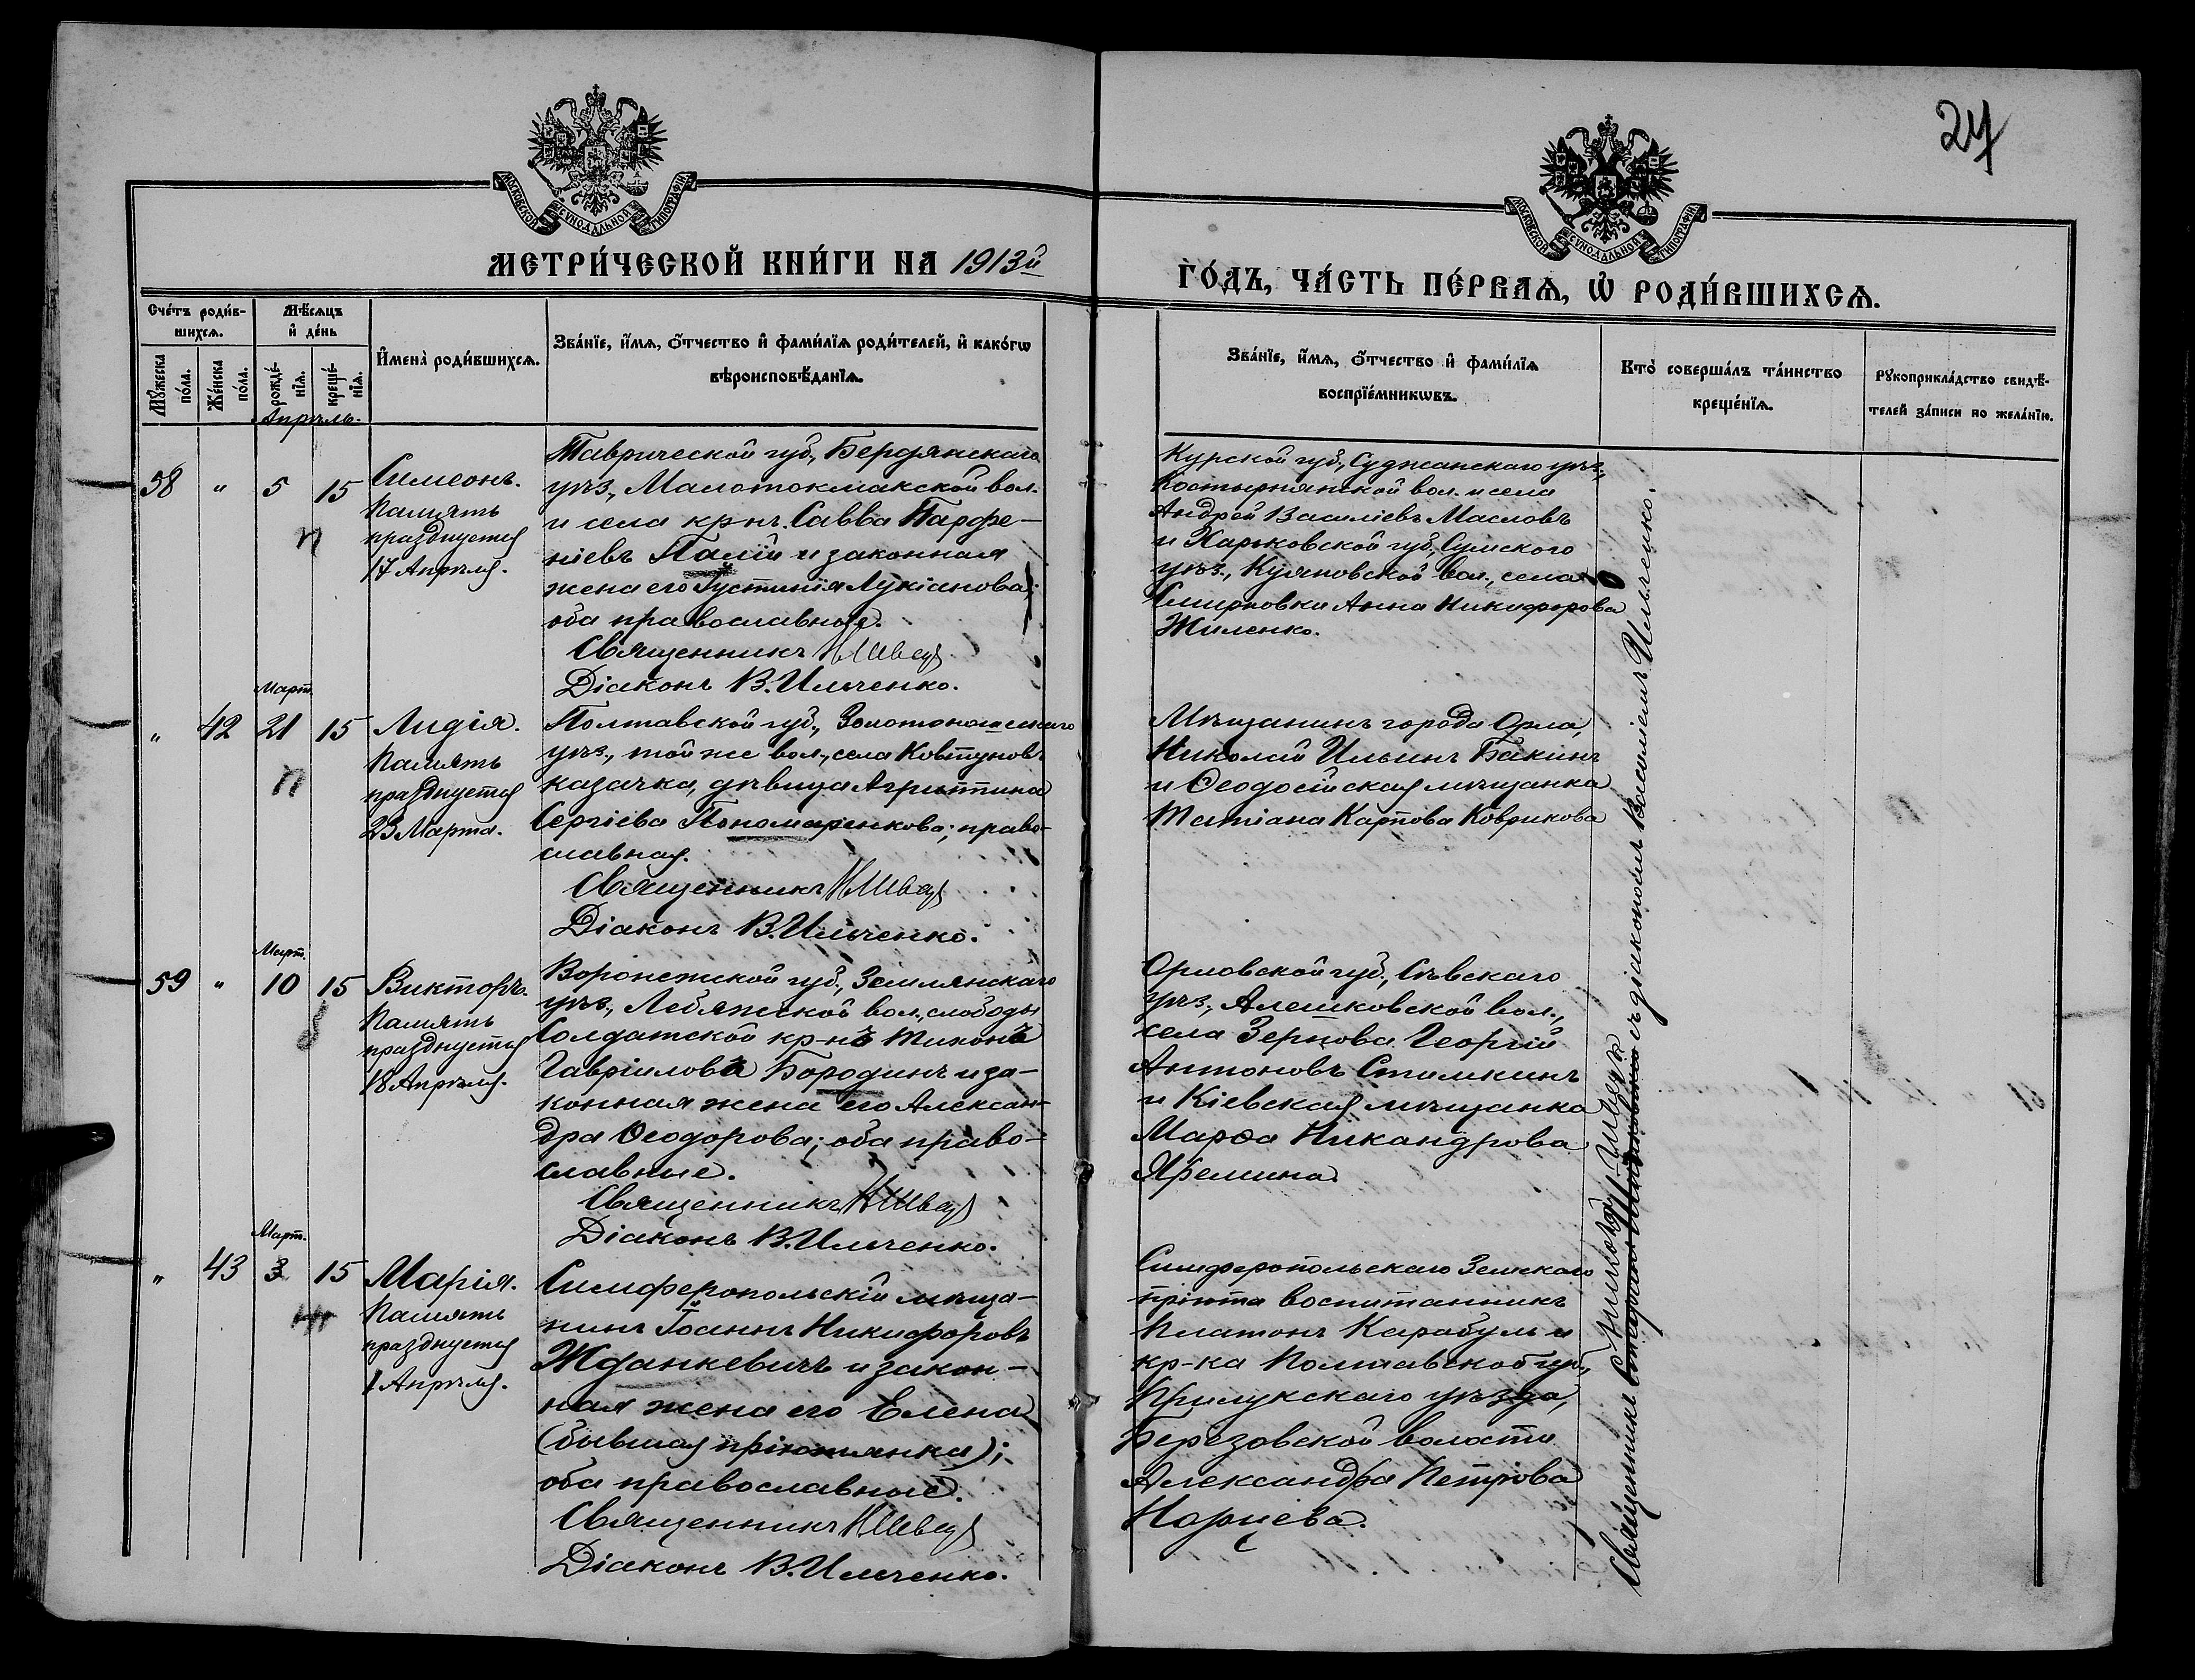 24
МОСКОВСКОЙ СѴНОДАЛЬНОЙ ТИПОГРАФІИ
МОСКОВСКОЙ СѴНОДАЛЬНОЙ ТИПОГРАФІИ
МЕТРИ́ЧЕСКОЙ КНИ́ГИ НА 1913й
ГО́ДЪ, ЧА́СТЬ ПЕ́РВАѦ, Ѡ҆ РОДИ́ВШИХСѦ.
Сче́тъ роди́в-
шихсѧ.
Мꙋ́жеска по́ла.
Же́нска по́ла.
Мѣ́сѧцъ
и҆ де́нь
рожде́-нїѧ.
креще́-нїѧ.
И҆мена̀ роди́вшихсѧ.
Зва́нїе, и҆́мѧ, ѻ҆́тчество и҆ фами́лїѧ роди́телей, и҆ како́гѡ
вѣроисповѣ́данїѧ.
Зва́нїе, и҆́мѧ, ѻ҆́тчество и҆ фами́лїѧ
воспрїе́мникѡвъ.
Кто̀ соверша́лъ та́инство
креще́нїѧ.
Рꙋкоприкла́дство свидѣ́-
телей за́писи по жела́нїю.
Апрѣль.
58 " 5 15
Симеонъ.
Память
празднуется
17 Апрѣля.
Таврической губ., Бердянскаго
уѣз., Малотокмакской вол.
и села кр-нъ. Савва Парфе-
ніевъ Палій и законная
жена его Іустинія Лукіанова;
оба православные.
Священникъ Н Швец
Діаконъ В. Ильченко.
Курской губ., Суджанскаго уѣз.,
Костырнянской вол. и села
Андрей Василіевъ Масловъ
и Харьковской губ., Сумскаго
уѣз., Куяновской вол., села
Смирновки Анна Никифорова
Жиленко.
Март.
" 42 21 15
Лидія.
Память
празднуется
23 Марта.
Полтавской губ., Золотоношскаго
уѣз., той же вол., села Ковтуновъ
казачка, дѣвица Агриппина
Сергіева Пономаренкова; право-
славная.
Священникъ Н Швец
Діаконъ В. Ильченко.
Мѣщанинъ города Орла,
Николай Ильинъ Бакинъ
и Ѳеодосійская мѣщанка
Татіана Карпова Коврикова
Март.
59 " 10 15
Викторъ.
Память
празднуется
18 Апрѣля.
Воронежской губ., Землянскаго
уѣз., Лебяжской вол., слободы
Солдатской кр-нъ Тихонъ
Гавріиловъ Бородинъ и за-
конная жена его Алексан-
дра Ѳеодорова; оба право-
славные.
Священникъ Н Швец
Діаконъ В. Ильченко.
Орловской губ., Сѣвскаго
уѣз., Алешковской вол.,
села Зернова Георгій
Антоновъ Стимкинъ
и Кіевская мѣщанка
Марѳа Никандрова
Яремина.
Март.
" 43 3 15
Марія.
Память
празднуется
1 Апрѣля.
Симферопольскій мѣща-
нинъ Іоаннъ Никифоровъ
Жданкевичъ и закон-
ная жена его Елена
(бывшая пріютянка);
оба православные.
Священникъ Н Швец
Діаконъ В. Ильченко.
Симферопольскаго Земскаго
пріюта воспитанникъ
Платонъ Карабулъ и
кр-ка Полтавской губ.,
Прилукскаго уѣзда,
Березовской волости
Александра Петрова
Норцева.
Священникъ Николай Швецъ съ діакономъ Василіемъ Ильченко.